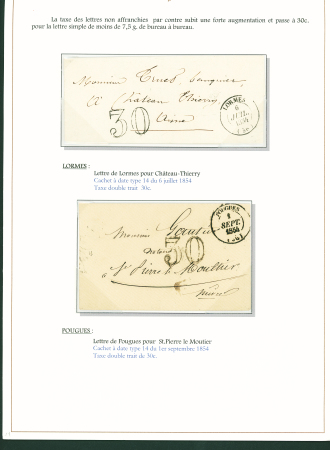 La taxe des lettres non affranchies par contre subit une forte augmentation et passe à 30c.
pour la lettre simple de moins de 7,5 g. de bureau à bureau.
Monsieur Ernest
à Château Thierry
Aisne
30
LORMES
6
LORMES :
Lettre de Lormes pour Château-Thierry
Cachet à date type 14 du 6 juillet 1854
Taxe double trait 30c.
Monsieur
notaire
30
à St Pierre le Moutier
Nièvre
POUGUES
1
SEPT.
POUGUES :
Lettre de Pougues pour St.Pierre le Moutier
Cachet à date type 14 du 1er septembre 1854
Taxe double trait de 30c.